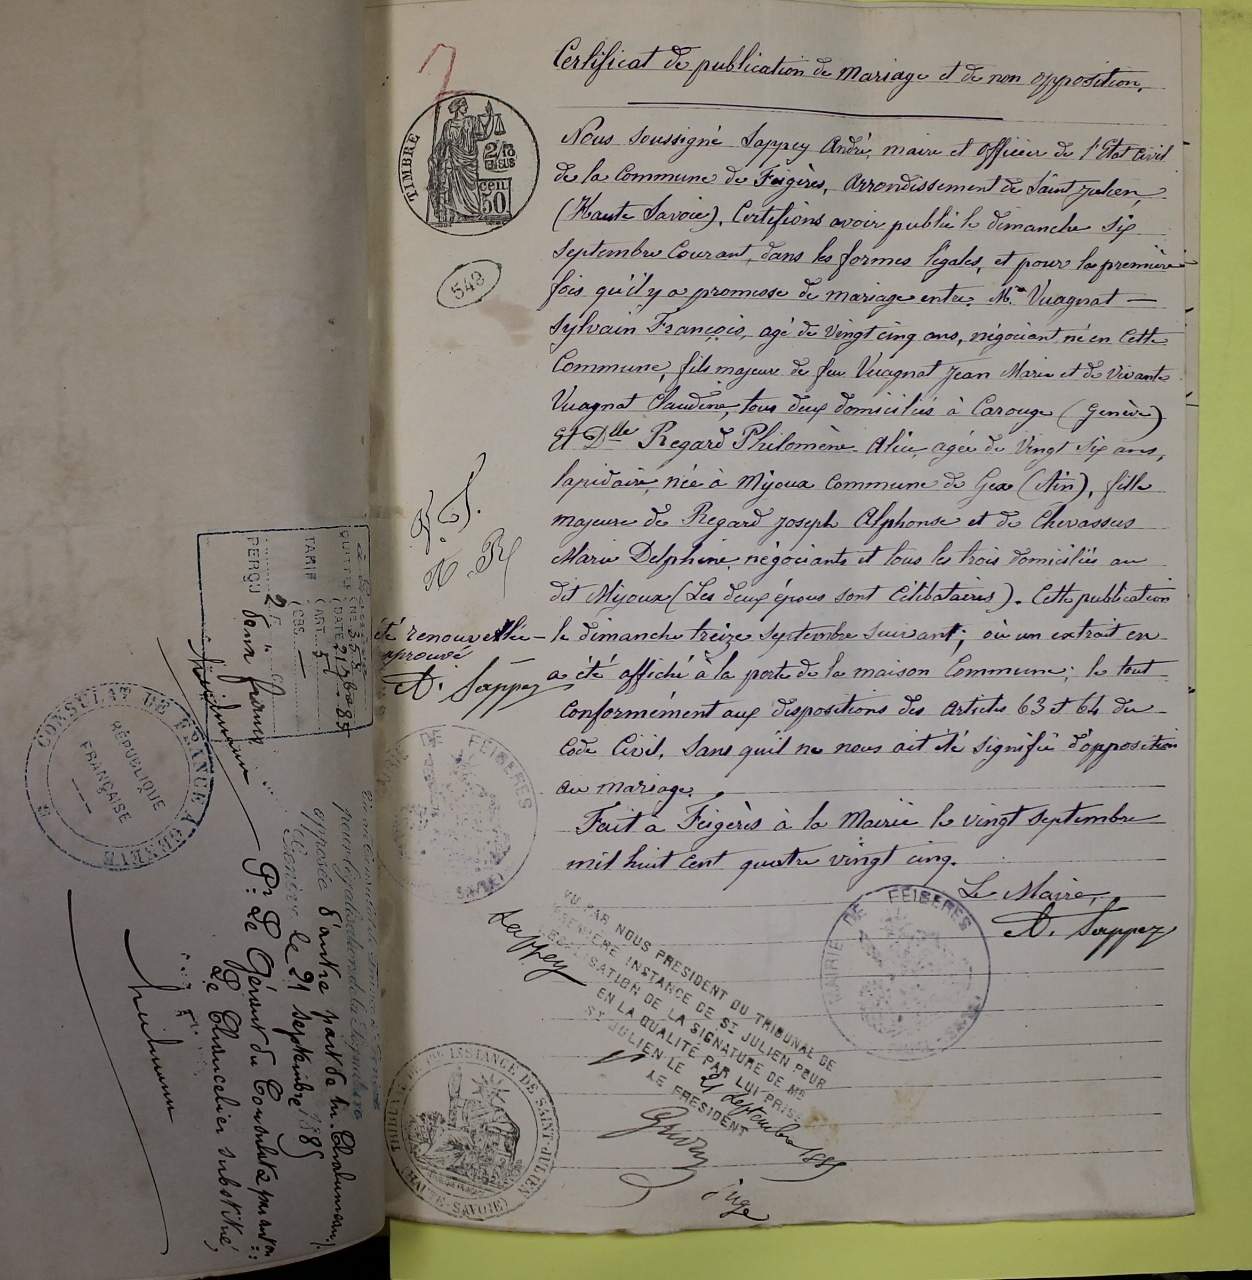 Certificat de publication de mariage et de non opposition.
Nous soussigné Sappey André, maire et officier de l'Etat Civil
de la Commune de Feigères, Arrondissement de Saint Julien,
(Haute Savoie), Certifions avoir publié le dimanche six
septembre Courant, dans les formes légales, et pour la première
fois qu'il y a promesse de mariage entre Mr Vuagnat —
Sylvain François, agé de vingt cinq ans, négociant né en Cette
Commune, fils majeure de feu Vuagnat Jean Marie et de vivante
Vuagnat Claudine, tous deux domiciliés à Carouge (Genève)
Et Dlle Regard Philomène Alix, agée de vingt six ans,
lapidaire, née à Mijoux Commune de Gex (Ain), fille
majeure de Regard Joseph Alphonse et de Chevassus
Marie Delphine, négociants et tous les trois domiciliés au
dit Mijoux (Les deux époux sont Célibataires). Cette publication
été renouvellée – le dimanche treize septembre suivant; où un extrait en
approuvé
A. Sappey
a été affiché à la porte de la maison Commune; le tout
Conformément aux dispositions des articles 63 et 64 du
Code Civil, sans qu'il ne nous ait été signifié d'opposition
au mariage.
Fait à Feigères à la Mairie le vingt septembre
mil huit cent quatre vingt cinq.
Le Maire,
A. Sappey
2
TIMBRE
2/10 EN SUS
50 cen
549
N. R
MAIRIE DE FEIGERES
MAIRIE DE FEIGERES
VU PAR NOUS PRESIDENT DU TRIBUNAL DE
PREMIERE INSTANCE DE ST JULIEN POUR
LEGALISATION DE LA SIGNATURE DE MR
Sappey
EN LA QUALITÉ PAR LUI PRISE
ST JULIEN LE 21 septembre 1885
LE PRESIDENT
juge
TRIBUNAL DE 1re INSTANCE DE SAINT-JULIEN
(HAUTE-SAVOIE)
QUITTCE
DATE 21 7bre 85
TARIF
ART. 5
OBS. —
PERÇU 2 F
deux francs
CONSULAT DE FRANCE A GENEVE
RÉPUBLIQUE
FRANÇAISE
pour légalisation de la signature
apposée d'autre part de M.
Genève le 21 septembre 1885
Pr Le Gérant du Consulat
Le Chancelier substitué,